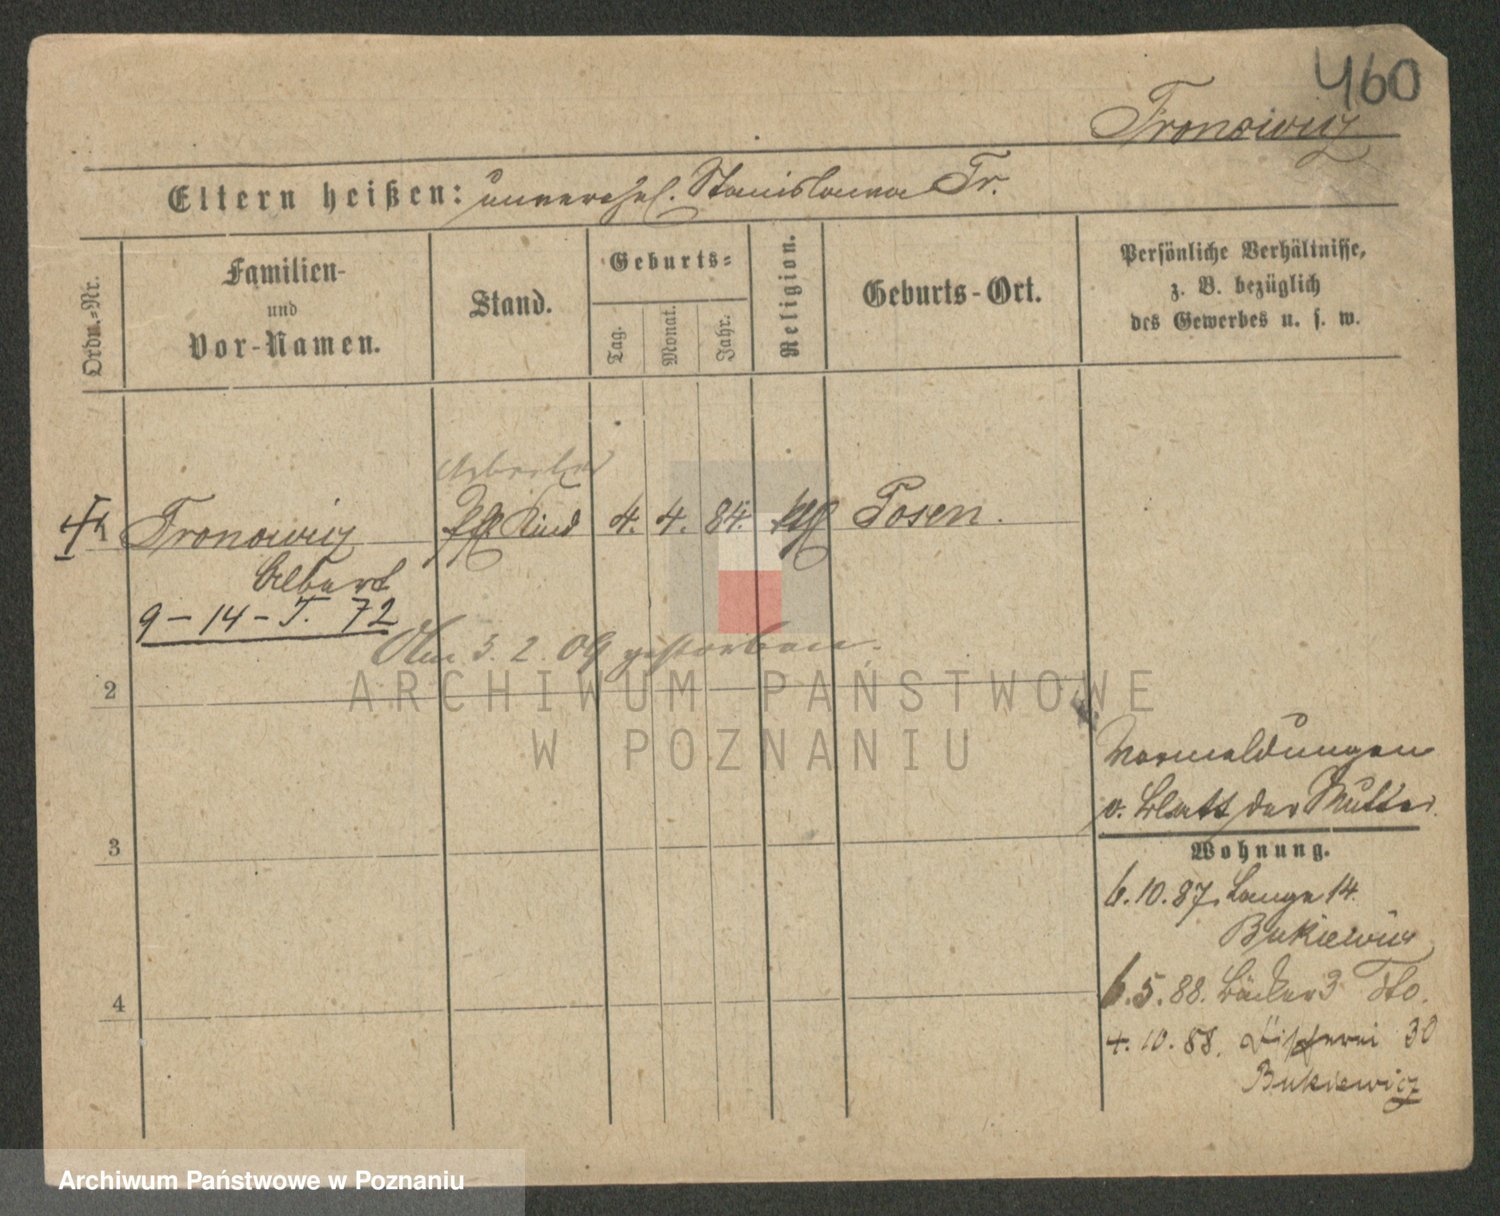 460
Fronowicz
Eltern heißen: unverehel. Stanislawa Fr.
Ordn.-Nr.
Familien-
und
Vor-Namen.
Stand.
Geburts-
Tag.
Monat.
Jahr.
Religion.
Geburts-Ort.
Persönliche Verhältnisse,
z. B. bezüglich
des Gewerbes u. s. w.
Arbeiter
Fronowicz Kind 4. 4. 84. kth Posen.
Albert
9-14-T. 72
Am 3. 2. 09 gestorben.
2
Vormeldungen
v. Blatt der Mutter.
3
Wohnung.
6.10.87. Lange 14.
Bukiewicz
6.5.88. Bäcker 3 Sto.
4
4.10.88. 30
Bukiewicz
ARCHIWUM PAŃSTWOWE
W POZNANIU
Archiwum Państwowe w Poznaniu